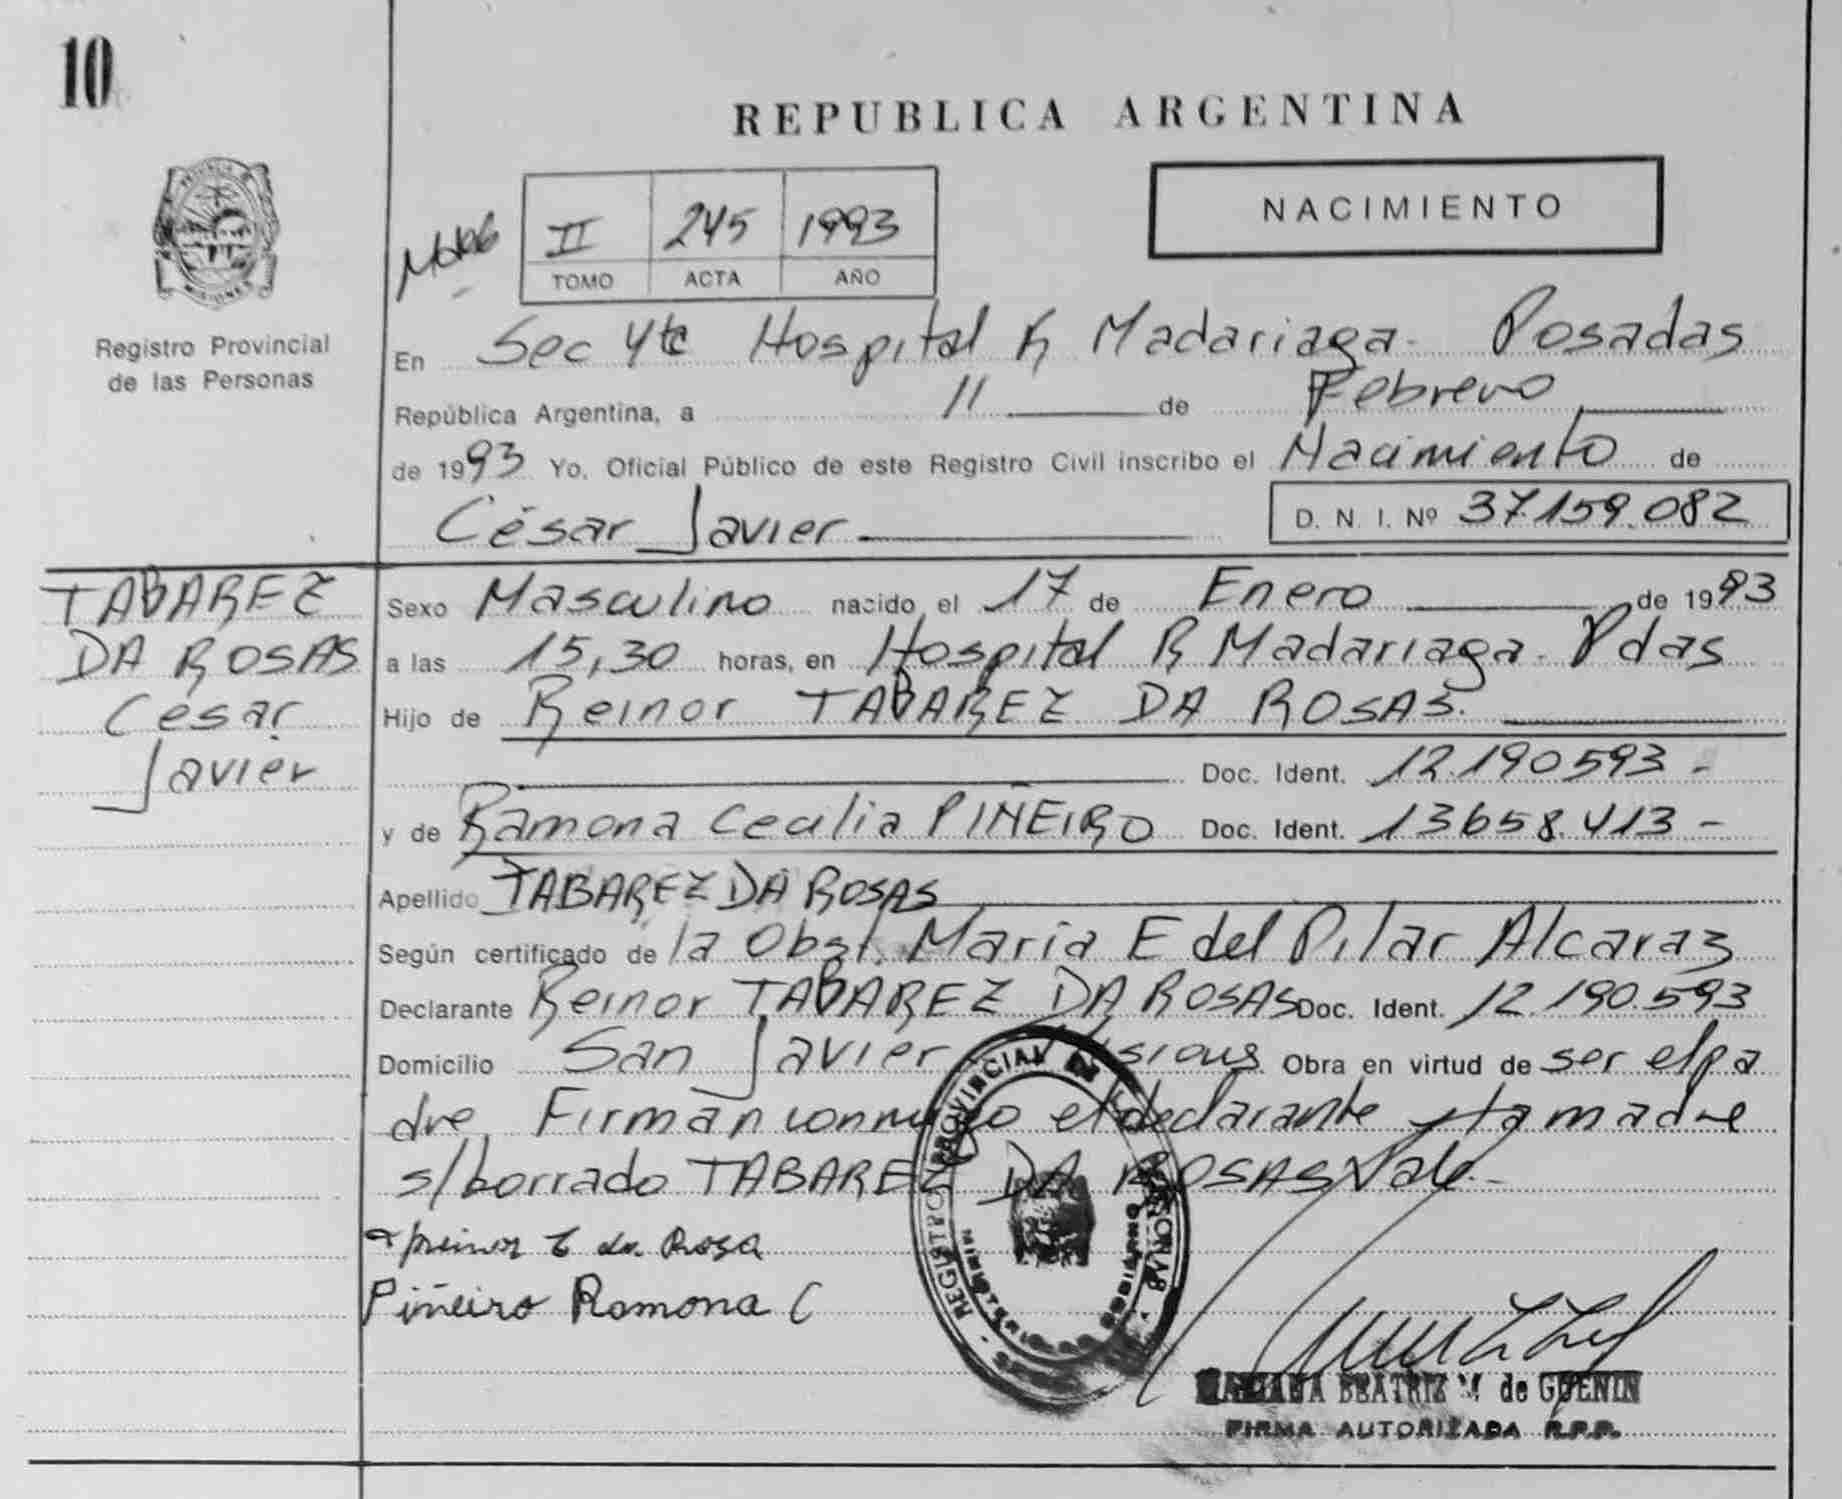 10
REPUBLICA ARGENTINA
NACIMIENTO
II 245 1993
TOMO ACTA AÑO
Registro Provincial
de las Personas
En Sec 4ta Hospital R Madariaga - Posadas
República Argentina, a 11 de Febrero
de 1993 Yo, Oficial Público de este Registro Civil inscribo el Nacimiento de
César Javier
D. N. I. Nº 37.159.082
TABAREZ
DA ROSAS
César
Javier
Sexo Masculino nacido el 17 de Enero de 1993
a las 15,30 horas, en Hospital R Madariaga - Pdas
Hijo de Reinor TABAREZ DA ROSAS.
Doc. Ident. 12.190593 -
y de Ramona Cecilia PIÑEIRO Doc. Ident. 13658.413 -
Apellido TABAREZ DA ROSAS
Según certificado de la Obst. María E del Pilar Alcaraz
Declarante Reinor TABAREZ DA ROSAS Doc. Ident. 12.190.593
Domicilio San Javier Obra en virtud de ser el pa
dre Firman conmigo el declarante y la madre
s/borrado TABAREZ DA ROSAS Vale -
da Rosa
Piñeiro Ramona C
REGISTRO PROVINCIAL DE
BEATRIZ M. de GUENIN
FIRMA AUTORIZADA R.P.P.